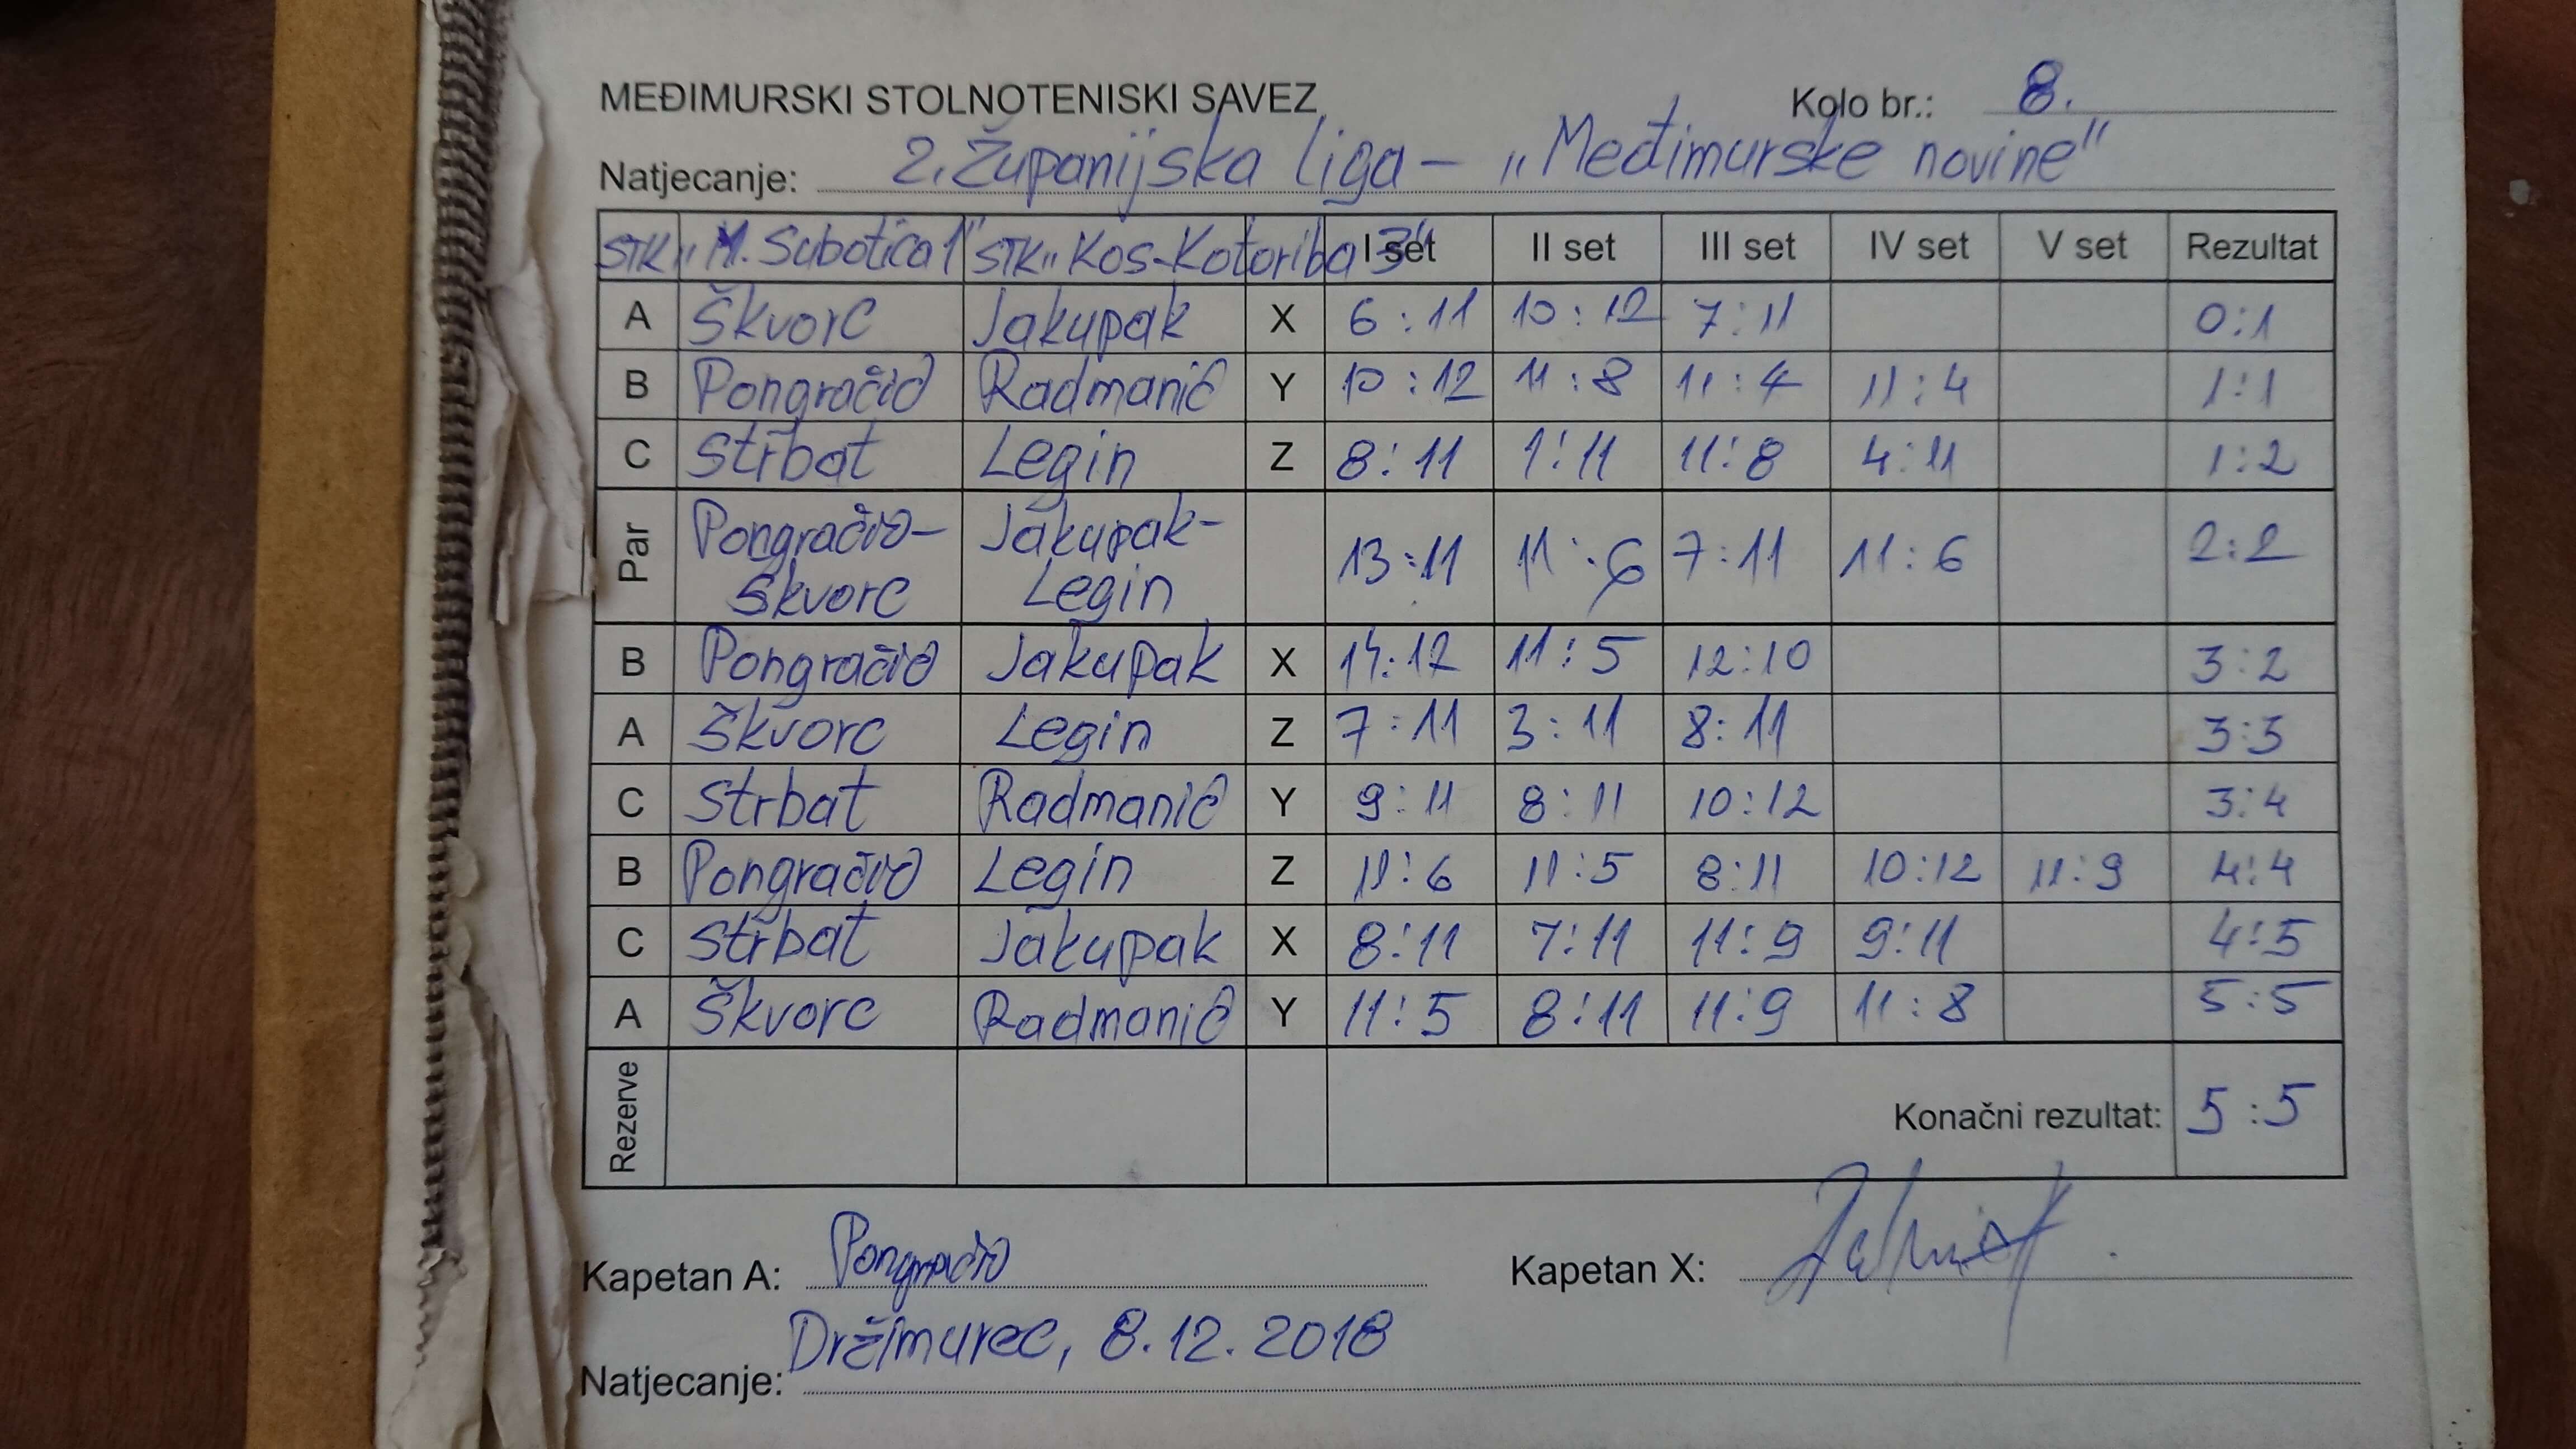 MEĐIMURSKI STOLNOTENISKI SAVEZ Kolo br.: 8.
Natjecanje: 2. Županijska liga – „Međimurske novine"
STK „M. Subotica 1" STK „Kos-Kotoriba 3" I set II set III set IV set V set Rezultat
A Škvorc Jakupak X 6:11 10:12 7:11 0:1
B Pongračić Radmanić Y 10:12 11:8 11:4 11:4 1:1
C Strbat Legin Z 8:11 1:11 11:8 4:11 1:2
Par Pongračić- Jakupak- 13:11 11:6 7:11 11:6 2:2
Škvorc Legin
B Pongračić Jakupak X 14:12 11:5 12:10 3:2
A Škvorc Legin Z 7:11 3:11 8:11 3:3
C Strbat Radmanić Y 9:11 8:11 10:12 3:4
B Pongračić Legin Z 11:6 11:5 8:11 10:12 11:9 4:4
C Strbat Jakupak X 8:11 7:11 11:9 9:11 4:5
A Škvorc Radmanić Y 11:5 8:11 11:9 11:8 5:5
Rezerve Konačni rezultat: 5:5
Kapetan A: Pongračić Kapetan X:
Natjecanje: Držimurec, 8.12.2018